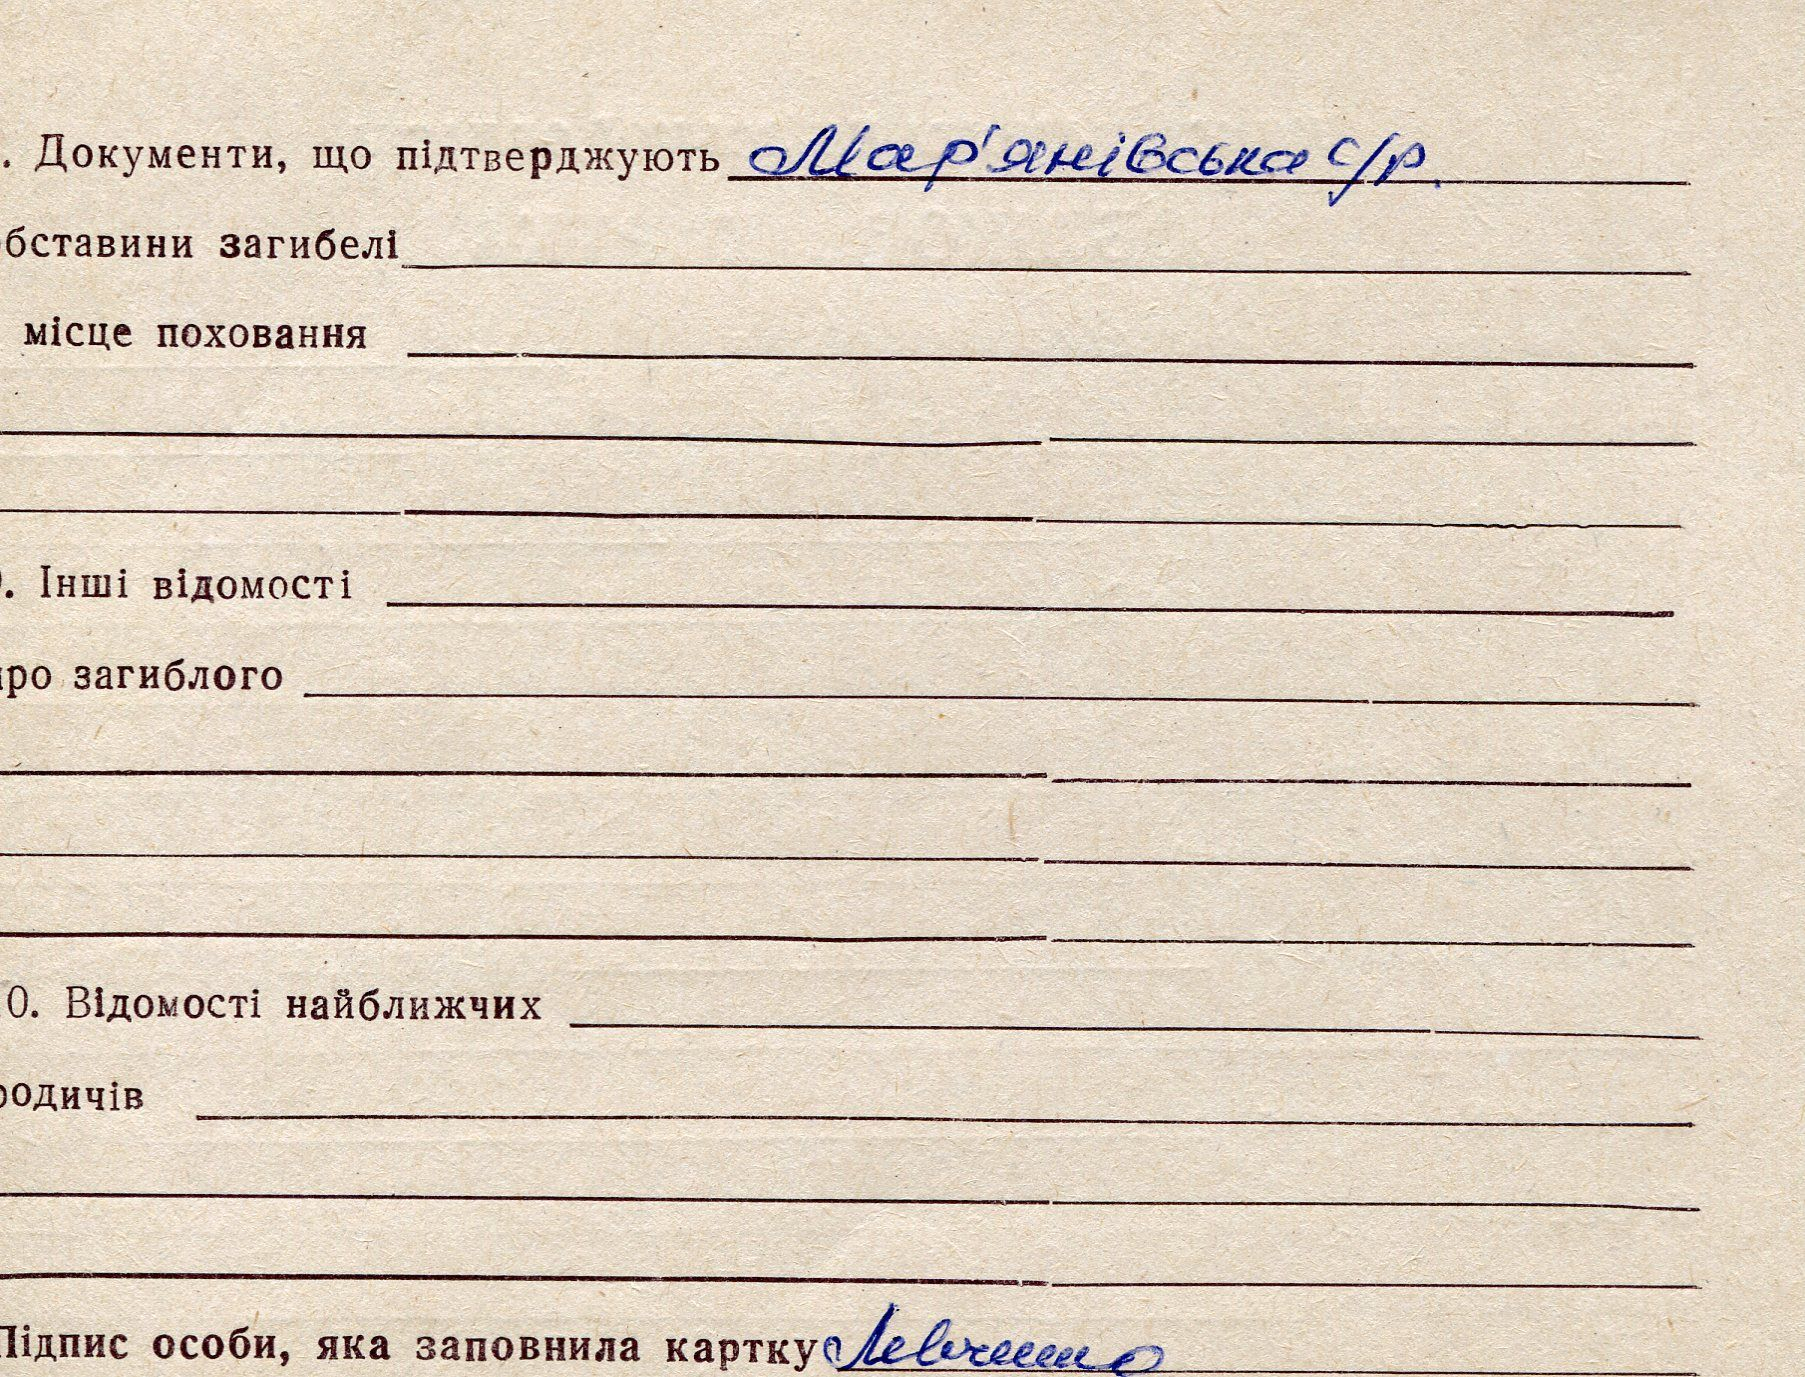 . Документи, що підтверджують Мар'янівська с/р.
обставини загибелі
місце поховання
9. Інші відомості
про загиблого
10. Відомості найближчих
родичів
Підпис особи, яка заповнила картку